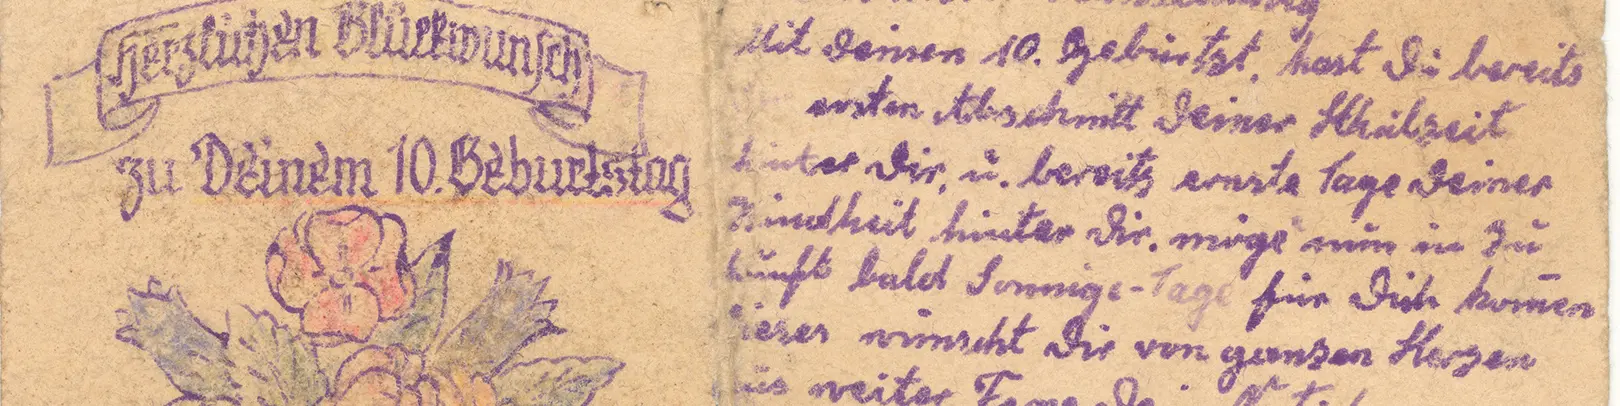 Herzlichen Glückwunsch
zu Deinem 10. Geburtstag
Mit Deinen 10. Gebürtst. hast Dü bereits
ersten Abschnitt Deiner Schülzeit
hinter Dir, ü. bereits ernste Tage Deiner
Kindheit hinter Dir. möge nün in Zü
künft bald Sonnige-Tage für Dich kom̄en
Dieses wünscht Dir von ganzen Herzen
aüs weiter Ferne Dein